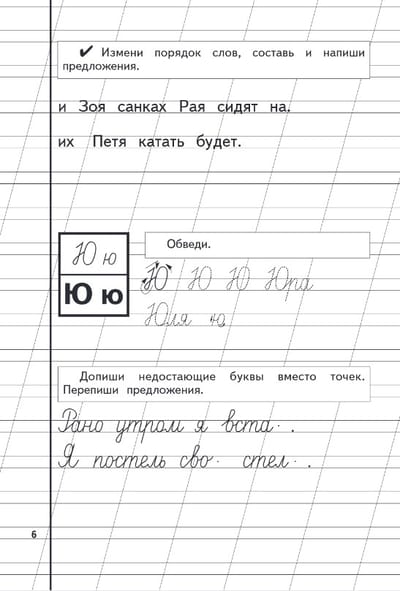 ✔ Измени порядок слов, составь и напиши
предложения.
и Зоя санках Рая сидят на.
их Петя катать будет.
Ю ю
Ю ю
Обведи.
Ю Ю Ю Юра
Юля ю
Допиши недостающие буквы вместо точек.
Перепиши предложения.
Рано утром я вста· .
Я постель сво· стел· .
6